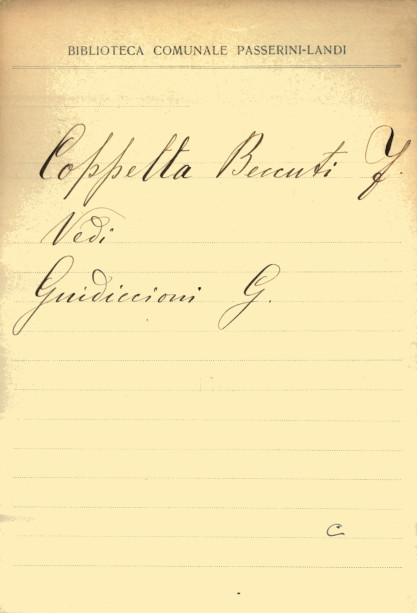 BIBLIOTECA COMUNALE PASSERINI-LANDI
Coppetta Beccuti F.
Vedi
Guidiccioni G.
C